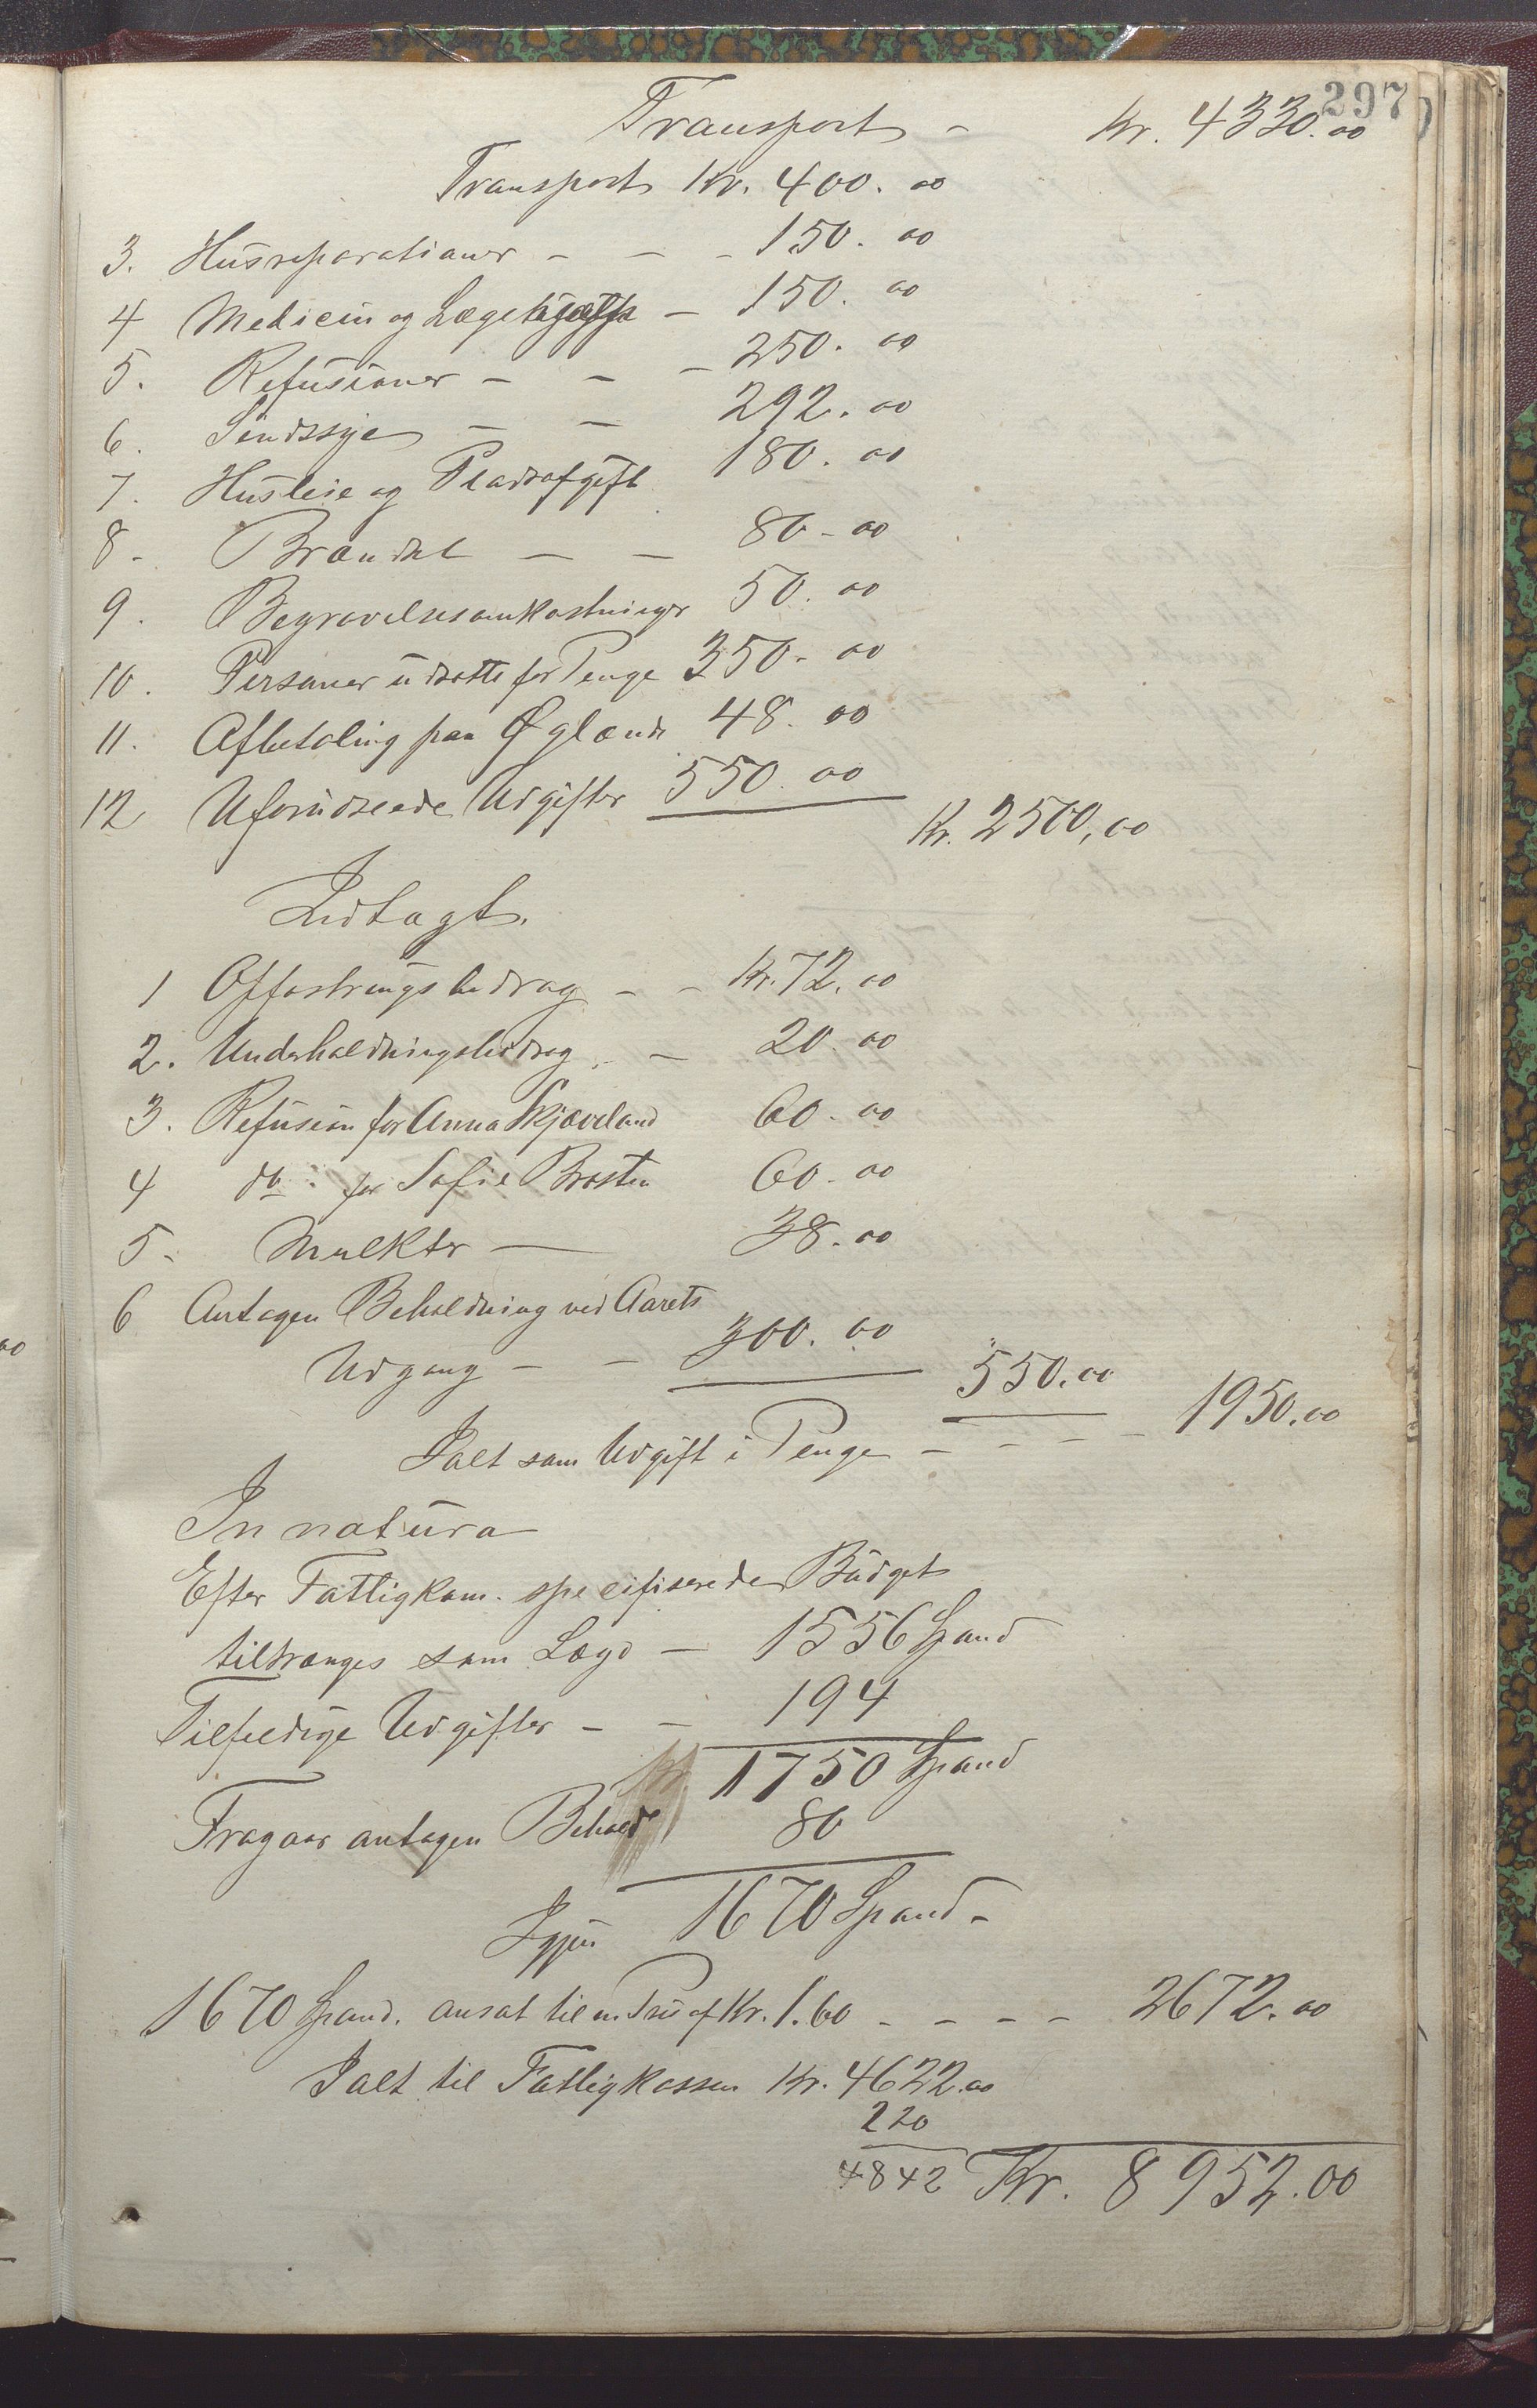 297
Transport - Kr. 4330.00
Transport Kr. 400.00
3. Husreparationer - - - 150.00
4 Medicin og Lægehjælp - 150.00
5. Refusioner - - - 250.00
6. Sindssyge - - 292.00
7. Husleie og Pladsafgift 180.00
8 - Brændsel - - 80-00
9. Begravelsesomkostninger 50.00
10. Personer udsatte for Penge 350-00
11. Afbetaling paa Øglænd 48.00
12 Uforudseede Udgifter 550.00
Kr. 2500,00
Indtægt.
1 Opfostringsbidrag - - Kr. 72.00
2. Underholdningsbidrag - 20.00
3. Refusion for Anna Skjæveland 60-00
4 do for Sofie Brosten 60-00
5- Mulkter - 38.00
6 Antagen Beholdning ved Aarets
Udgang - - 300.00 550.00
Ialt som Udgift i Penge - - - - 1950.00
In natura
Efter Fattigkom. specifiserede Budget
tiltrænges som Lægd - 1556 Spand
Tilfeldige Udgifter - - 194
1750 Spand
Fragaar antagen Behold 80
Igjen 1670 Spand -
1670 Spand. ansat til en Pris af Kr. 1.60 - - - - 2672.00
Ialt til Fattigkassen Kr. 4622.00
220
4842 Kr. 8952.00